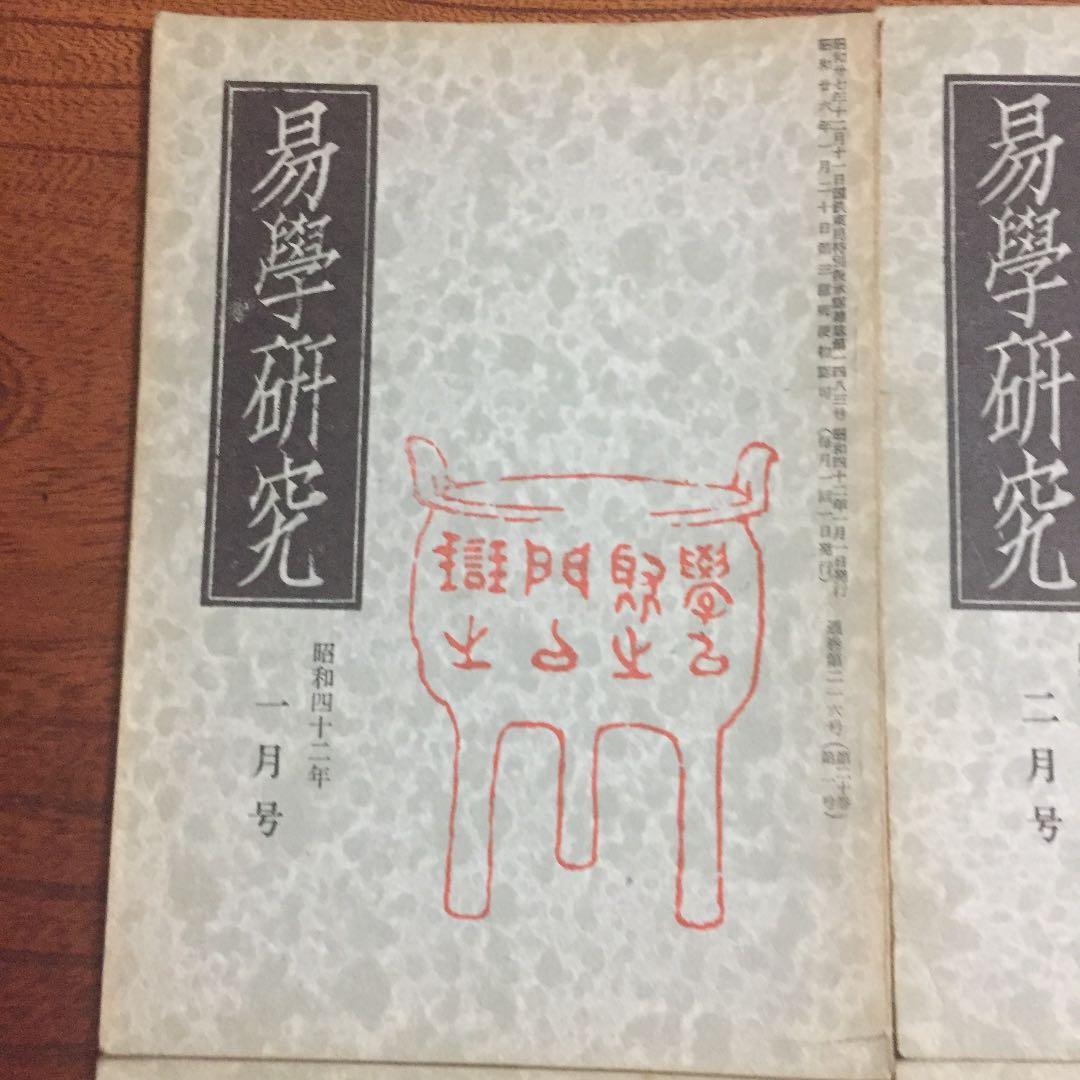 昭和廿七年十二月十一日国鉄東局特別扱承認雑誌第一四八三号 昭和四十二年一月一日発行 通巻第二一六号(第二十巻
昭和廿六年一月二十日第三種郵便物認可 (毎月一回一日発行) 第一号)
易學研究
昭和四十二年
一月号
學以聚之
問以辯之
易學研究
二月号